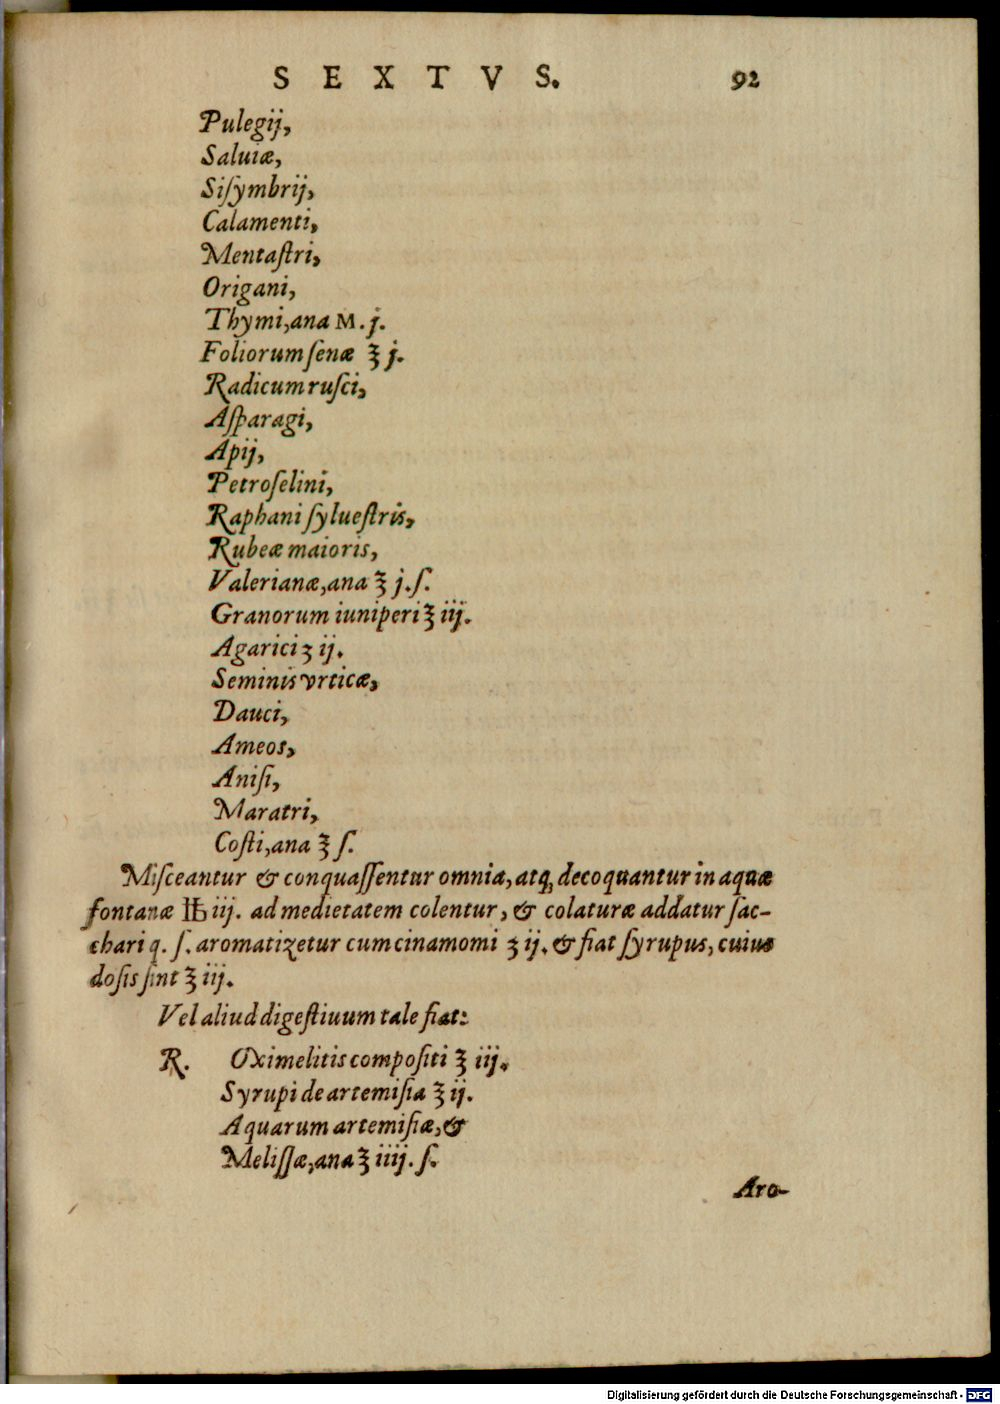 SEXTVS. 92
Pulegij,
Saluiæ,
Siſymbrij,
Calamenti,
Mentaſtri,
Origani,
Thymi, ana M. j.
Foliorum ſenæ ℥ j.
Radicum ruſci,
Aſparagi,
Apij,
Petroſelini,
Raphani ſylueſtris,
Rubeæ maioris,
Valerianæ, ana ℥ j. ſ.
Granorum iuniperi ℥ iij.
Agarici ʒ ij.
Seminis vrticæ,
Dauci,
Ameos,
Aniſi,
Maratri,
Coſti, ana ℥ ſ.
Miſceantur & conquaſſentur omnia, atq; decoquantur in aquæ
fontanæ ℔ iij. ad medietatem colentur, & colaturæ addatur ſac-
chari q. ſ. aromatizetur cum cinamomi ʒ ij. & fiat ſyrupus, cuius
doſis ſint ℥ iij.
Vel aliud digeſtiuum tale fiat:
R. Oximelitis compoſiti ℥ iij.
Syrupi de artemiſia ℥ ij.
Aquarum artemiſiæ, &
Meliſſæ, ana ℥ iiij. ſ.
Aro-
Digitalisierung gefördert durch die Deutsche Forschungsgemeinschaft - DFG